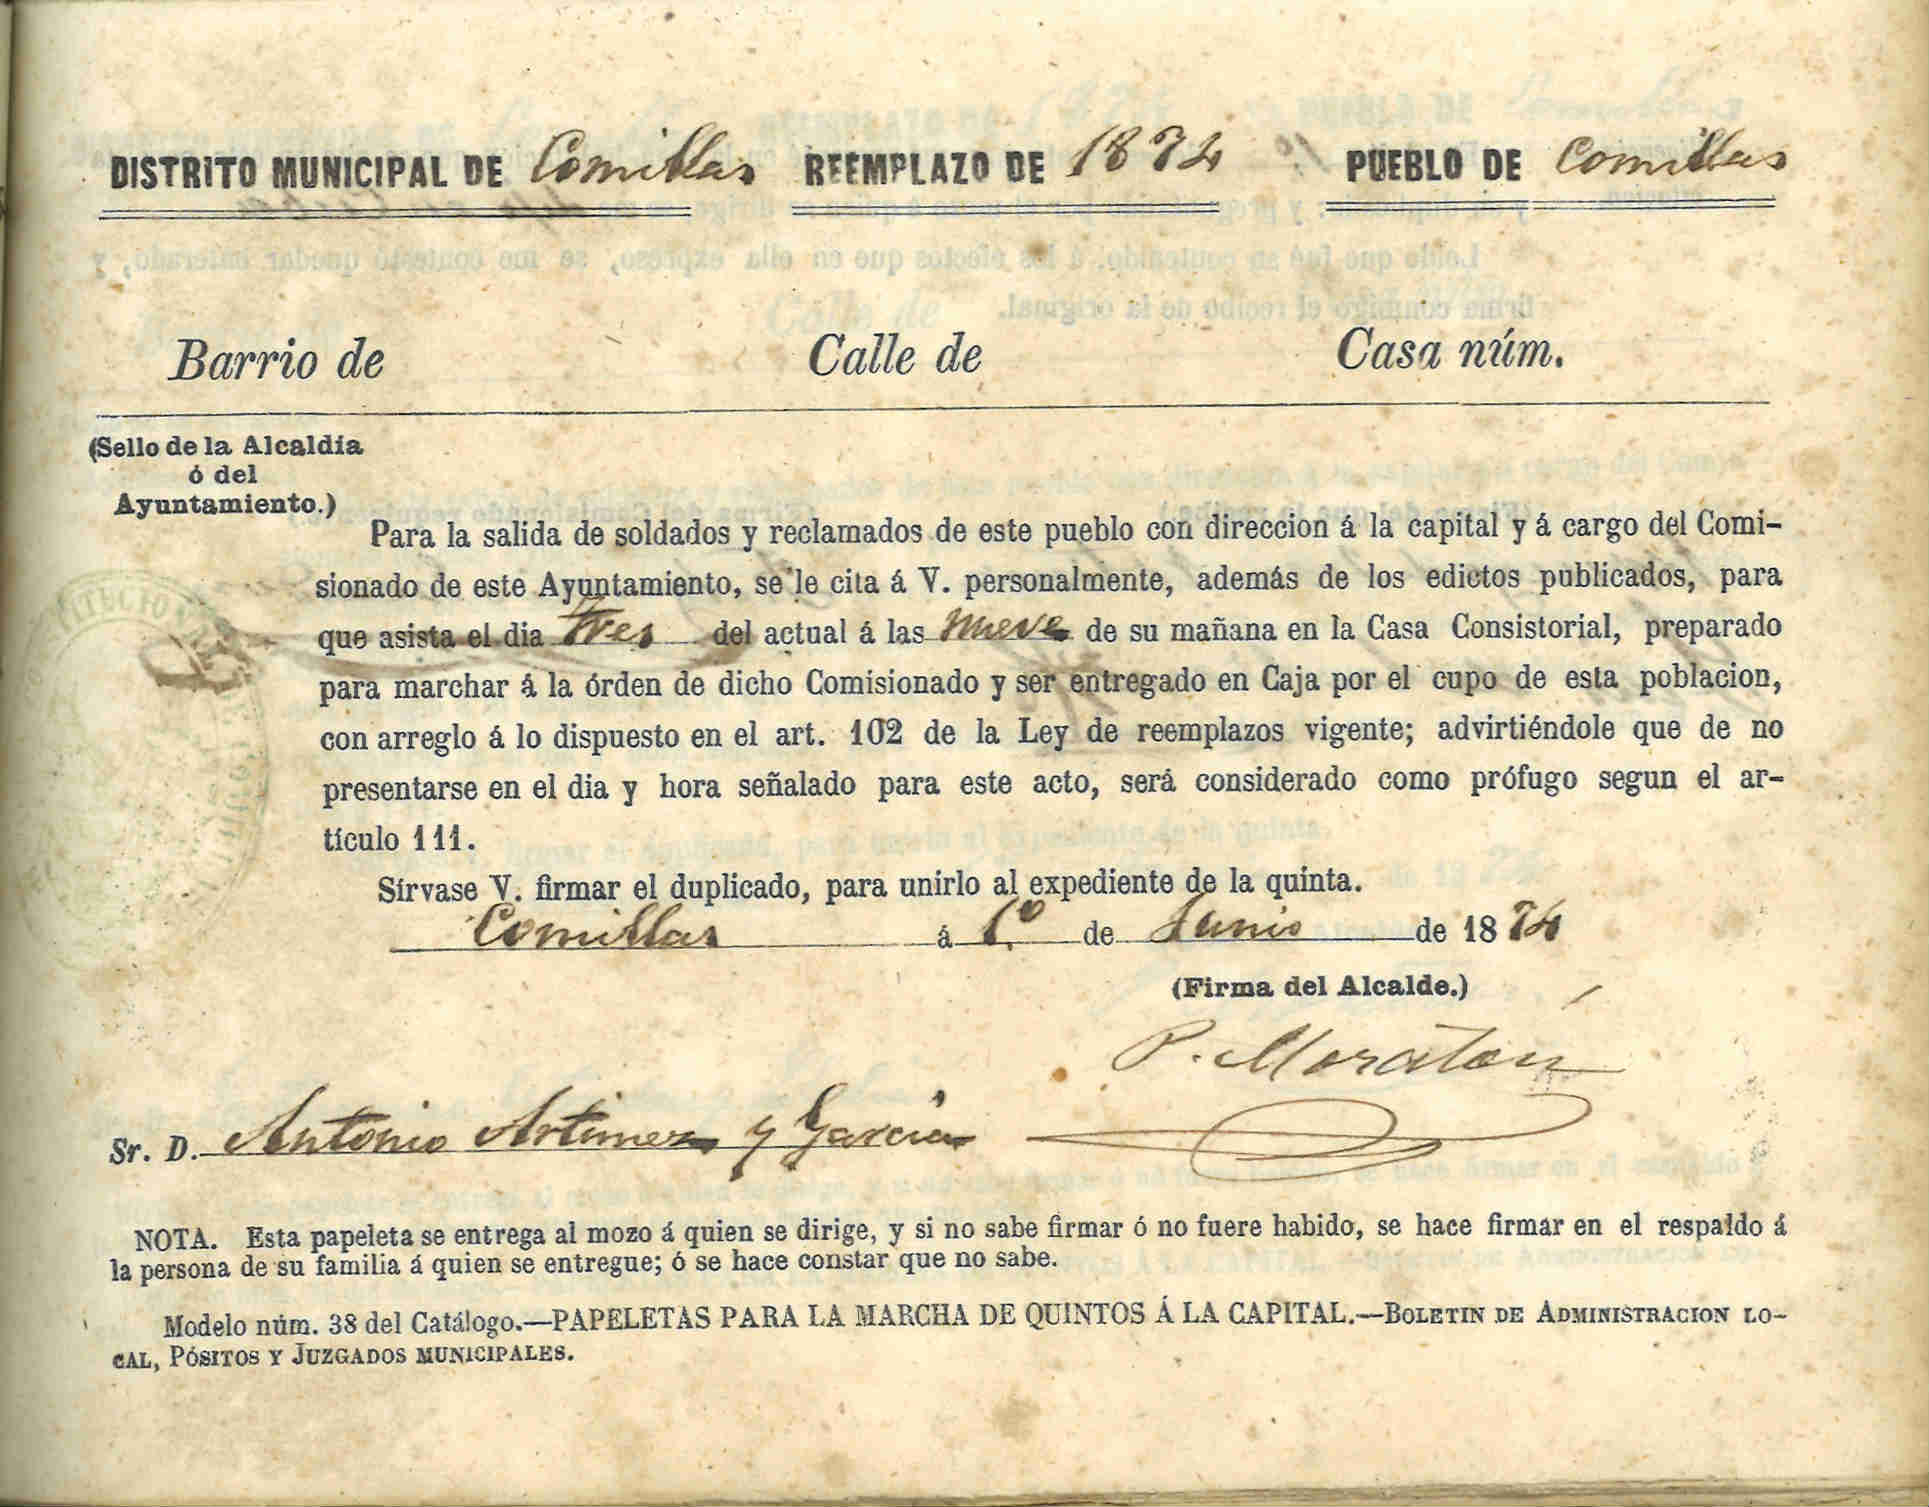 DISTRITO MUNICIPAL DE Comillas REEMPLAZO DE 1874 PUEBLO DE Comillas
Barrio de Calle de Casa núm.
(Sello de la Alcaldía
ó del
Ayuntamiento.)
Para la salida de soldados y reclamados de este pueblo con direccion á la capital y á cargo del Comi-
sionado de este Ayuntamiento, se le cita á V. personalmente, además de los edictos publicados, para
que asista el dia tres del actual á las nueve de su mañana en la Casa Consistorial, preparado
para marchar á la órden de dicho Comisionado y ser entregado en Caja por el cupo de esta poblacion,
con arreglo á lo dispuesto en el art. 102 de la Ley de reemplazos vigente; advirtiéndole que de no
presentarse en el dia y hora señalado para este acto, será considerado como prófugo segun el ar-
tículo 111.
Sírvase V. firmar el duplicado, para unirlo al expediente de la quinta.
Comillas á 1.º de Junio de 1874
(Firma del Alcalde.)
P. Moratón
Sr. D. Antonio Artimez y García
NOTA. Esta papeleta se entrega al mozo á quien se dirige, y si no sabe firmar ó no fuere habido, se hace firmar en el respaldo á
la persona de su familia á quien se entregue; ó se hace constar que no sabe.
Modelo núm. 38 del Catálogo.—PAPELETAS PARA LA MARCHA DE QUINTOS Á LA CAPITAL.—BOLETIN DE ADMINISTRACION LO-
CAL, PÓSITOS Y JUZGADOS MUNICIPALES.